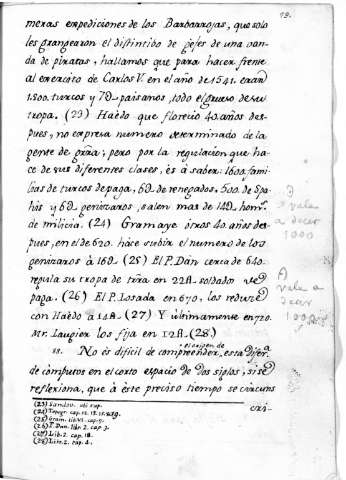 19.
meras expediciones de los Barbarrojas, que solo
les grangearon el distintibo de gefes de una van-
da de piratas, hallamos que para hacer frente
al exercito de Carlos V. en el año de 1541. eran
1.800. turcos y 7@ paisanos, todo el grueso de su
tropa. (23) Haèdo que florecio 40. años des-
pues, no expresa numero determinado de la
gente de grra; pero por la regulacion que ha-
ce de sus diferentes clases, ès à saber: 1600. fami-
lias de turcos de paga, 6@. de renegados. 500. de Spa-
his y 6@ genizaros, salen mas de 14@ homs.
de milicia. (24) Gramaye otros 40. años des-
pues, en el de 620. hace subir el numero de los
genizaros à 16@. (25) El P. Dan cerca de 640.
regula su tropa de tierra en 22@ soldados de
paga. (26) El P. Losada en 670, los reduze
con Haèdo à 14@. (27) Y ultimamente en 720.
Mr. Laugier los fija en 12@. (28.)
el origen de
No ès dificil de comprehender, esta difer.a
de computos en el corto espacio de dos siglos, si se
reflexiona, que à èste preciso tiempo se circuns
(23) Sandov. ubi sup.
(24) Topogr. cap. 12. 13. 15. &
(25) Gram. lib. VI. cap. 7.
(26) P. Dan. libr. 2. cap. 3.
(27) Lib. 2. cap. 18.
(28) Libr. 2. cap. 4.
vale
a decir
1000
A
vale a
decir